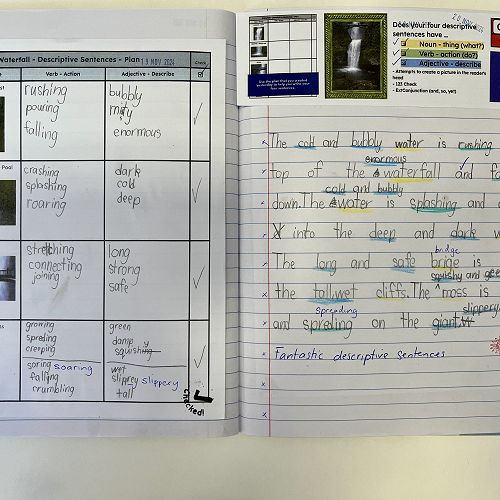 Waterfall - Descriptive Sentences - Plan
19 NOV 2024
Check
Verb - Action
Adjective - Describe
rushing
pouring
falling
bubbly
misty
enormous
Pool
crashing
splashing
roaring
dark
cold
deep
stretching
connecting
joining
long
strong
safe
growing
spreding
creeping
green
damp
squishy
soring soaring
falling
crumbling
wet
slippey slippery
tall
Checked!
Use the plan that you created yesterday to help you write your four sentences.
Does your four descriptive
sentences have ...
Noun - thing (what?)
Verb - action (do?)
Adjective - describe
- Attempts to create a picture in the reader's
head
- 123 Check
- ExtConjunction (and, so, yet)
The cold and bubbly water is rushing
enormous
top of the waterfall and
cold and bubbly
down. The water is splashing and
into the deep and dark
bridge
The long and safe brige is
squishy and
the tall wet cliffs. The moss is
Spreading
slippery
and spreding on the giant
Fantastic descriptive sentences